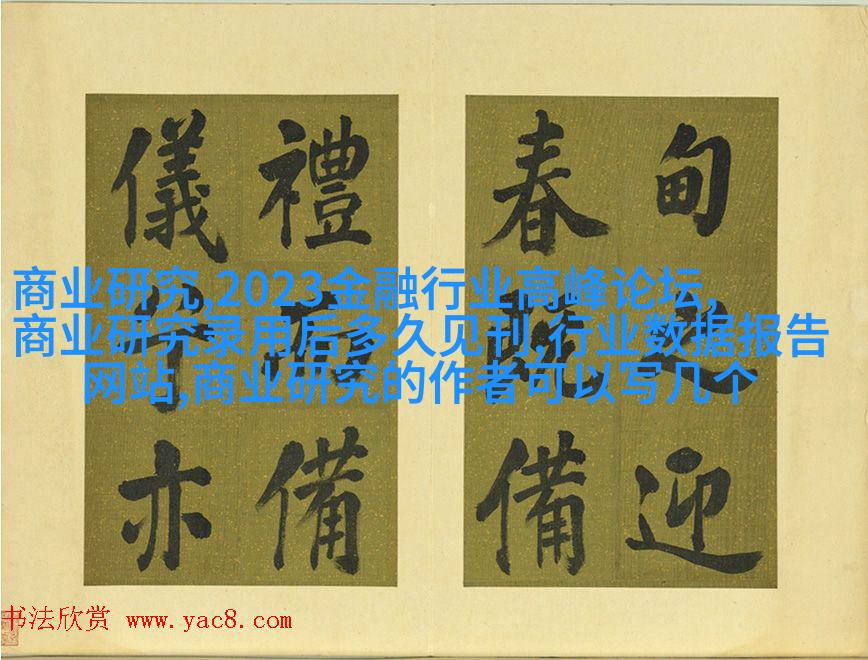 商业研究,2023金融行业高峰论坛,
商业研究录用后多久见刊,行业数据报告
网站,商业研究的作者可以写几个
甸之迎
春既備
禮備
儀亦
书法欣赏 www.yac8.com